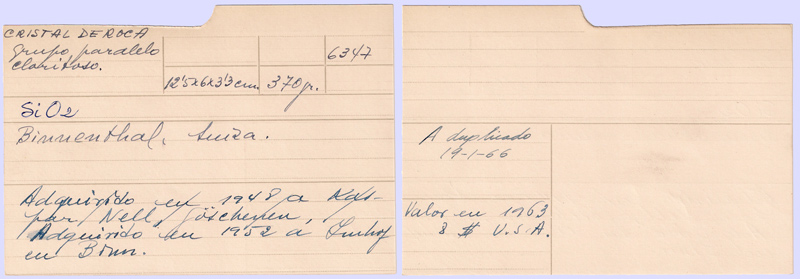 CRISTAL DE ROCA
grupo paralelo
cloritoso.
6347
12'5x6x3'3 cm. 370 gr.
SiO2
Binnenthal, Suiza.
Adquirido en 1948 a Kas-
par Nell, Göschenen,
Adquirido en 1952 a Imhof
en Binn.
A duplicado
19-1-66
Valor en 1963
8 $ U.S.A.